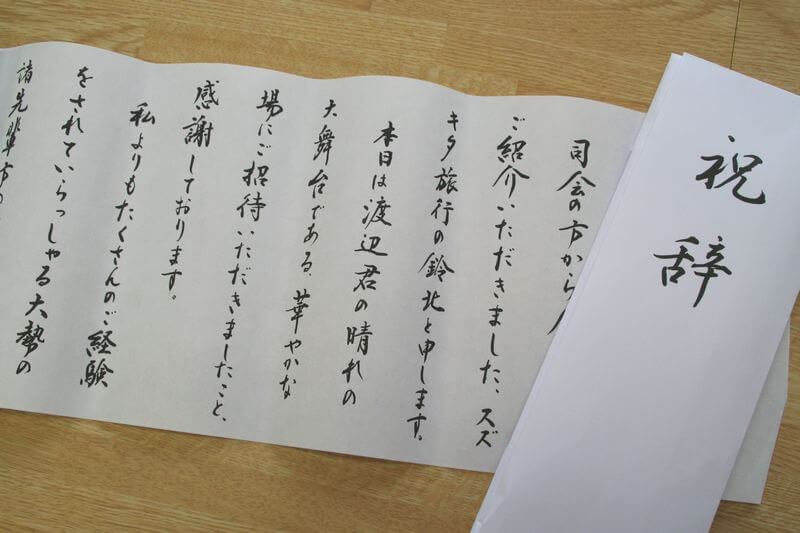 祝辞
司会の方から
ご紹介いただきました、スズ
キタ旅行の鈴北と申します。
本日は渡辺君の晴れの
大舞台である、華やかな
場にご招待いただきましたこと、
感謝しております。
私よりもたくさんのご経験
をされていらっしゃる大勢の
諸先輩方の